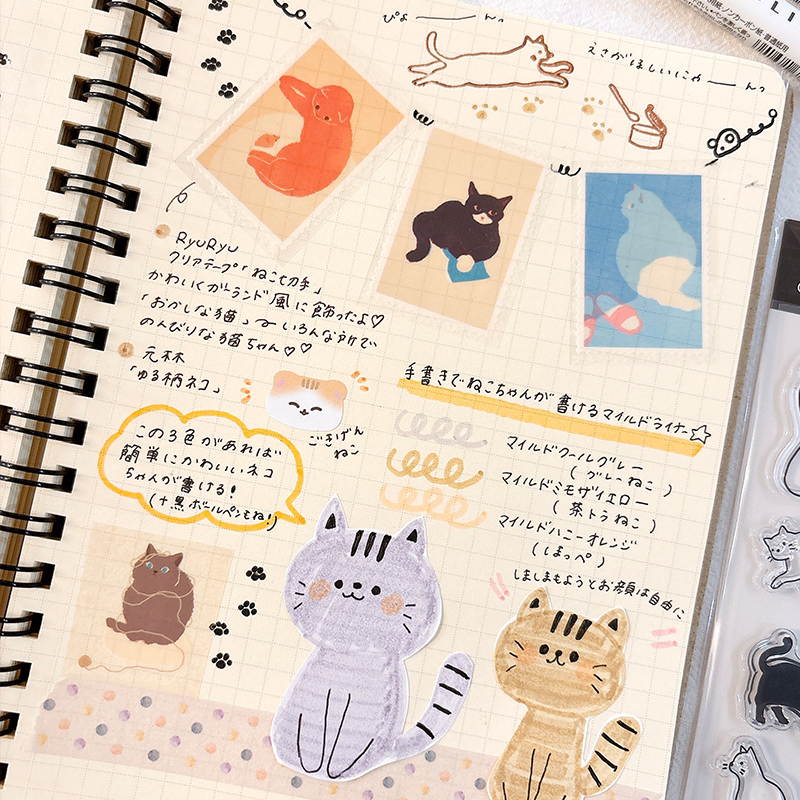 ぴょ――んっ
えさがほしいにゃ――んっ
RyuRyu
クリアテープ「ねこ切手」
かわいくガーランド風に飾ったよ♡
「おかしな猫」〜いろんな所で
のんびりな猫ちゃん♡♡
元林
「ゆる柄ネコ」
ごきげん
ねこ
手書きでねこちゃんが書けるマイルドライナー☆
マイルドクールグレー
(グレーねこ)
マイルドミモザイエロー
(茶トラねこ)
マイルドハニーオレンジ
(ほっぺ)
しましまもようとお顔は自由に
この3色があれば
簡単にかわいいネコ
ちゃんが書ける!
(+黒ボールペンもね!)